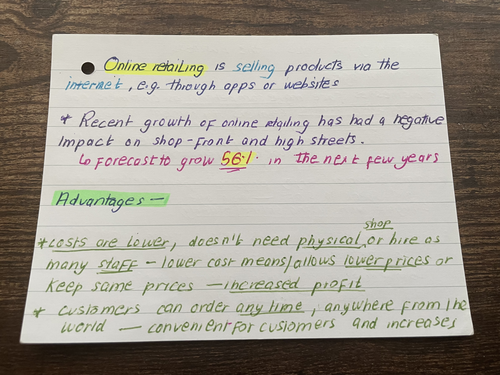 Online retailing is selling products via the
internet, e.g. through apps or websites
* Recent growth of online retailing has had a negative
impact on shop-front and high streets.
↳ forecast to grow 56% in the next few years
Advantages —
shop
* costs are lower, doesn't need physical, or hire as
many staff - lower cost means/allows lower prices or
keep same prices — increased profit
* customers can order any time, anywhere from the
world — convenient for customers and increases